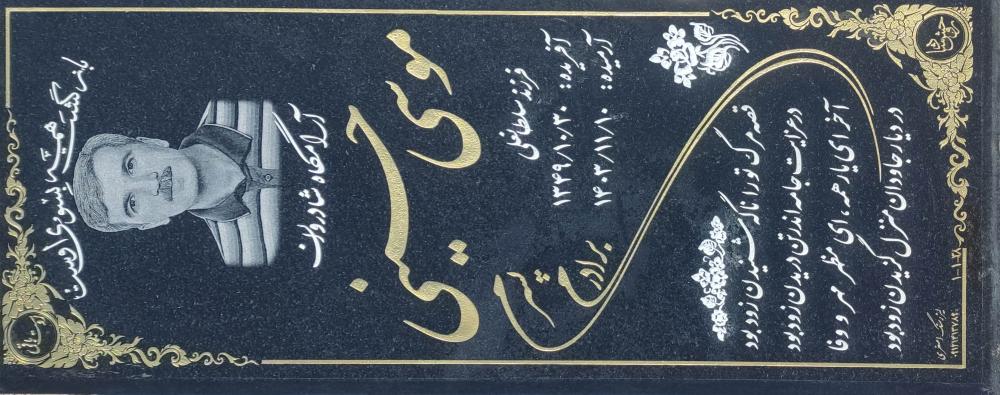 بازگشت همه بسوی اوست
آرامگاه شادروان
موسی حسنی
فرزند سلطانعلی
آفریده: ۱۳۴۹/۱۰/۳۰
آرمیده: ۱۴۰۳/۱۱/۱۰
برادرم
قصه مرگ تو را ناگه شنیدن زود بود
در عزایت جامه اندر تن دریدن زود بود
آخر ای یار همه، ای مظهر مهر و وفا
در دیار جاودان منزل گزیدن زود بود